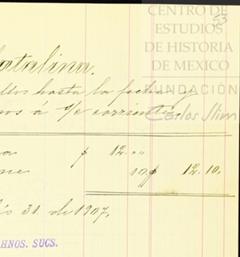 CENTRO DE
ESTUDIOS
DE HISTORIA
DE MEXICO
53
FUNDACIÓN
Carlos Slim
atalina.
hasta la fecha
á c/c corriente
$ 12.00
10 $ 12.10.
31 de 1907.
HNOS. SUCS.